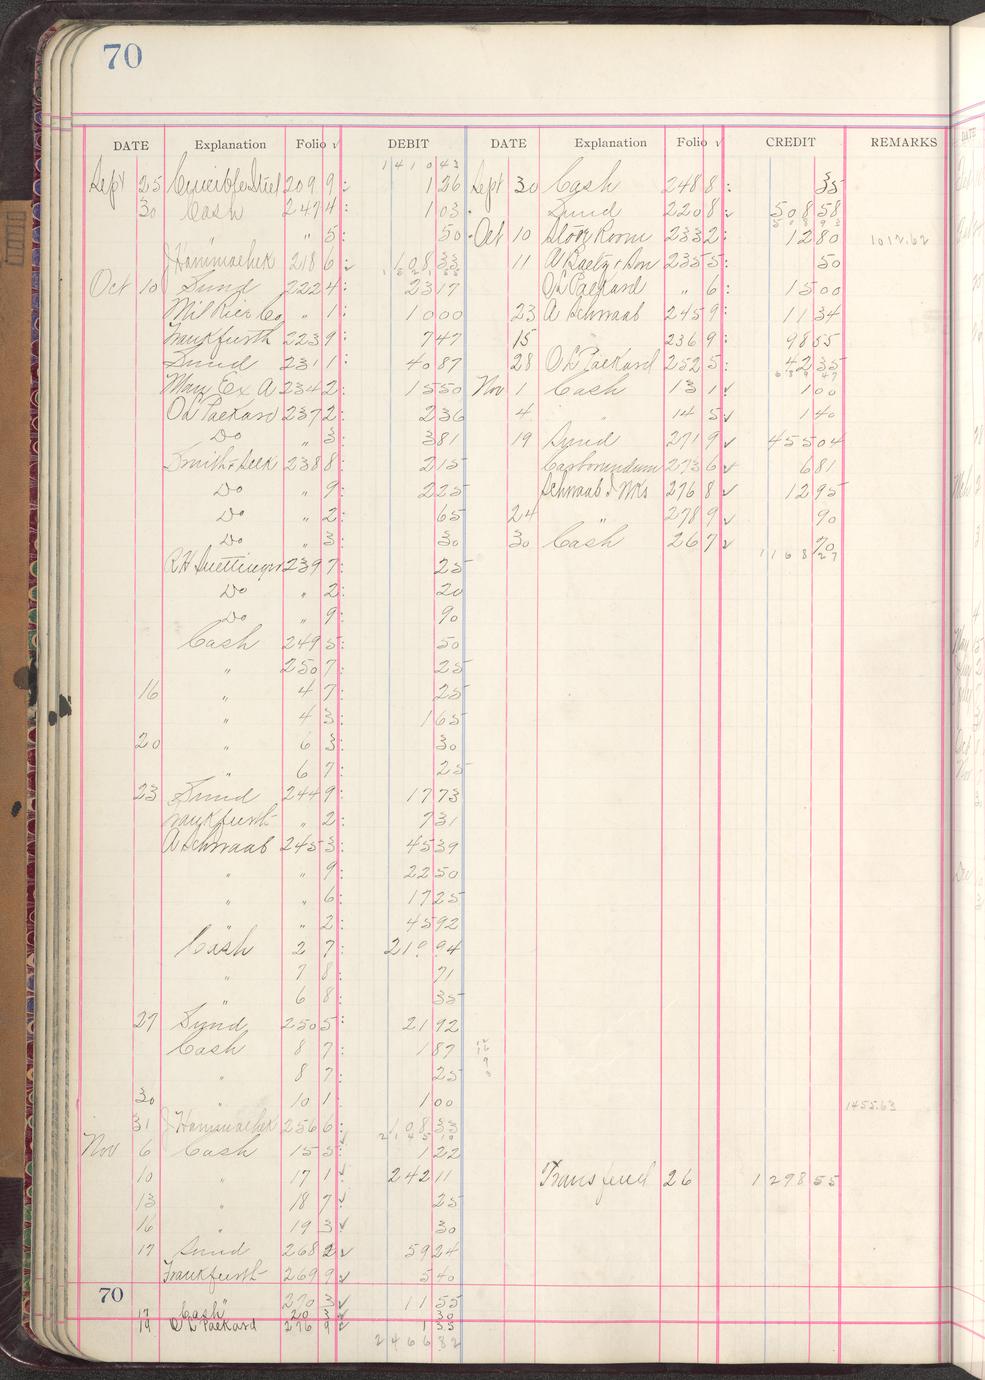 70
DATE Explanation Folio √ DEBIT DATE Explanation Folio √ CREDIT REMARKS
1410 43
Sept 25 Crucible Steel 209 9 : 1 26 Sept 30 Cash 248 8 : 35
30 Cash 247 4 : 1 03 Sund 220 8 ✓ 508 58
" " 5 : 50 Oct 10 Stove Room 233 2 : 12 80 1012.62
J Hammacher 218 6 ✓ 108 33 11 A Raetz & Son 235 5 : 50
Oct 10 Sund 222 4 : 23 17 O L Packard " 6 : 15 00
Mil Rice Co " 1 : 10 00 23 A Schwaab 245 9 : 11 34
Frankfurth 223 9 : 7 47 15 236 9 : 98 55
Sund 231 1 : 40 87 28 O L Packard 252 5 : 42 35
689 47
Many Ex A 234 2 : 15 50 Nov 1 Cash 13 1 ✓ 1 00
O L Packard 237 2 : 2 36 4 " 14 5 ✓ 1 40
Do " 3 : 3 81 19 Sund 271 9 ✓ 455 04
238 8 : 2 15 Carborundum 273 6 ✓ 6 81
Do " 9 : 2 25 Schwaab S Wks 276 8 ✓ 12 95
Do " 2 : 65 24 " 278 9 ✓ 90
Do " 3 : 30 30 Cash 26 7 ✓ 70
1168 27
239 7 : 25
Do " 2 : 20
Do " 9 : 90
Cash 249 5 : 50
" 250 7 : 25
16 " 4 7 : 25
" 4 3 : 1 65
20 " 6 3 : 30
" 6 7 : 25
23 Sund 244 9 : 17 73
Frankfurth " 2 : 7 31
A Schwaab 245 3 : 45 39
" " 9 : 22 50
" " 6 : 17 25
" " 2 : 45 92
Cash 2 7 : 210 94
" 7 8 : 71
" 6 8 : 35
27 Sund 250 5 : 21 92
Cash 8 7 : 1 87
" 8 7 : 25
30 " 10 1 : 1 00
1455.63
31 J Hammacher 256 6 : 108 33
Nov 6 Cash 15 5 ✓ 1 22
10 " 17 1 ✓ 242 11 Transferred 26 1298 55
13 " 18 7 ✓ 25
16 " 19 3 ✓ 30
17 Sund 268 2 ✓ 59 24
Frankfurth 269 9 ✓ 5 40
70
" 270 3 ✓ 11 55
17 Cash 20 3 ✓ 30
19 O L Packard 276 9 ✓ 1 35
2466 82